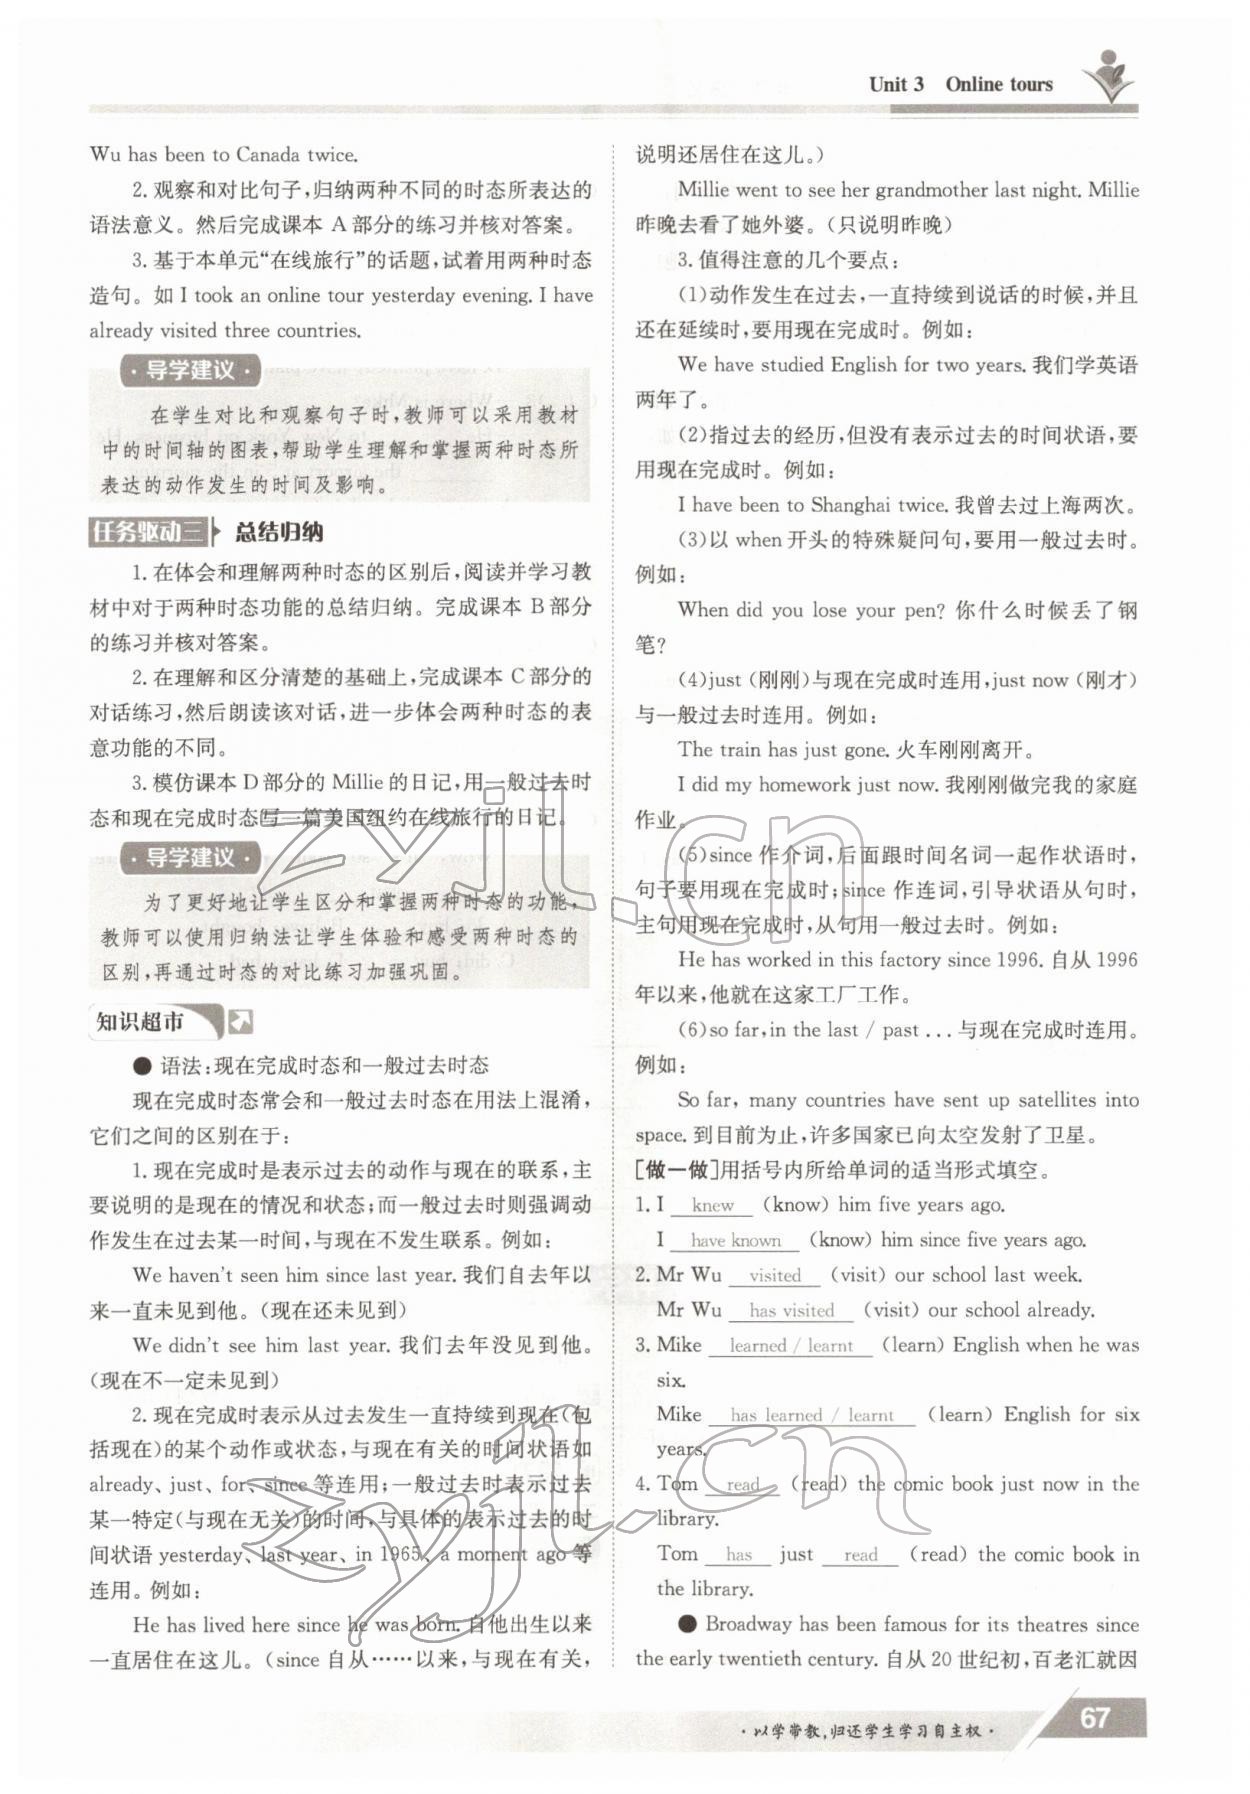 Unit 3 Online tours
Wu has been to Canada twice.
2. 观察和对比句子,归纳两种不同的时态所表达的
语法意义。然后完成课本 A 部分的练习并核对答案。
3. 基于本单元“在线旅行”的话题,试着用两种时态
造句。如 I took an online tour yesterday evening. I have
already visited three countries.
· 导学建议 ·
在学生对比和观察句子时,教师可以采用教材
中的时间轴的图表,帮助学生理解和掌握两种时态所
表达的动作发生的时间及影响。
任务驱动三 总结归纳
1. 在体会和理解两种时态的区别后,阅读并学习教
材中对于两种时态功能的总结归纳。完成课本 B 部分
的练习并核对答案。
2. 在理解和区分清楚的基础上,完成课本 C 部分的
对话练习,然后朗读该对话,进一步体会两种时态的表
意功能的不同。
3. 模仿课本 D 部分的 Millie 的日记,用一般过去时
态和现在完成时态写一篇美国纽约在线旅行的日记。
· 导学建议 ·
为了更好地让学生区分和掌握两种时态的功能,
教师可以使用归纳法让学生体验和感受两种时态的
区别,再通过时态的对比练习加强巩固。
知识超市
● 语法:现在完成时态和一般过去时态
现在完成时态常会和一般过去时态在用法上混淆,
它们之间的区别在于:
1. 现在完成时是表示过去的动作与现在的联系,主
要说明的是现在的情况和状态;而一般过去时则强调动
作发生在过去某一时间,与现在不发生联系。例如:
We haven't seen him since last year. 我们自去年以
来一直未见到他。(现在还未见到)
We didn't see him last year. 我们去年没见到他。
(现在不一定未见到)
2. 现在完成时表示从过去发生一直持续到现在(包
括现在)的某个动作或状态,与现在有关的时间状语如
already、just、for、since 等连用;一般过去时表示过去
某一特定(与现在无关)的时间,与具体的表示过去的时
间状语 yesterday、last year、in 1965、a moment ago 等
连用。例如:
He has lived here since he was born. 自他出生以来
一直居住在这儿。(since 自从……以来,与现在有关,
说明还居住在这儿。)
Millie went to see her grandmother last night. Millie
昨晚去看了她外婆。(只说明昨晚)
3. 值得注意的几个要点:
(1)动作发生在过去,一直持续到说话的时候,并且
还在延续时,要用现在完成时。例如:
We have studied English for two years. 我们学英语
两年了。
(2)指过去的经历,但没有表示过去的时间状语,要
用现在完成时。例如:
I have been to Shanghai twice. 我曾去过上海两次。
(3)以 when 开头的特殊疑问句,要用一般过去时。
例如:
When did you lose your pen? 你什么时候丢了钢
笔?
(4)just (刚刚)与现在完成时连用,just now (刚才)
与一般过去时连用。例如:
The train has just gone. 火车刚刚离开。
I did my homework just now. 我刚刚做完我的家庭
作业。
(5)since 作介词,后面跟时间名词一起作状语时,
句子要用现在完成时;since 作连词,引导状语从句时,
主句用现在完成时,从句用一般过去时。例如:
He has worked in this factory since 1996. 自从 1996
年以来,他就在这家工厂工作。
(6)so far,in the last / past ... 与现在完成时连用。
例如:
So far, many countries have sent up satellites into
space. 到目前为止,许多国家已向太空发射了卫星。
[做一做]用括号内所给单词的适当形式填空。
1. I knew (know) him five years ago.
I have known (know) him since five years ago.
2. Mr Wu visited (visit) our school last week.
Mr Wu has visited (visit) our school already.
3. Mike learned / learnt (learn) English when he was
six.
Mike has learned / learnt (learn) English for six
years.
4. Tom read (read) the comic book just now in the
library.
Tom has just read (read) the comic book in
the library.
● Broadway has been famous for its theatres since
the early twentieth century. 自从 20 世纪初,百老汇就因
· 以学带教,归还学生学习自主权 ·
67
zyjl.cn
zyjl.cn